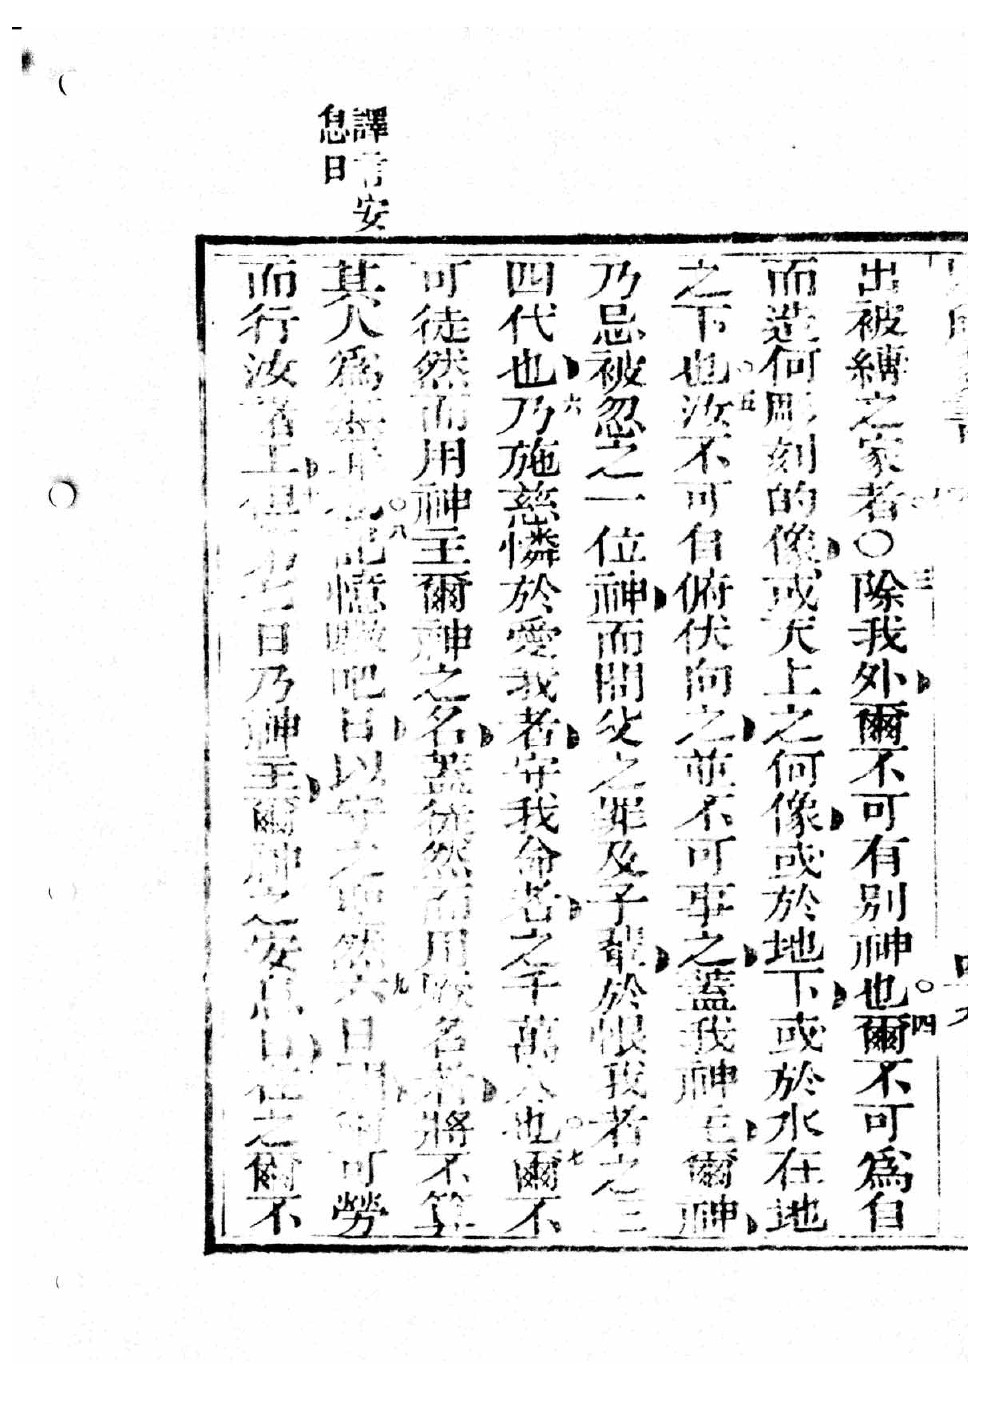 出被縛之家者○三除我外爾不可有別神也○四爾不可為自
而造何彫刻的像或天上之何像或於地下或於水在地
之下也○五汝不可自俯伏向之並不可事之蓋我神主爾神
乃忌被忽之一位神而問父之罪及子輩於恨我者之三
四代也○六乃施慈憐於愛我者守我命者之千萬人也○七爾不
可徒然而用神主爾神之名蓋徒然而用厥名者將不算
其人為無罪也○八記憶𠿝吧日以守之聖然○九六日間爾可勞
而行汝諸工○十但 日乃神主爾神之安息日在之爾不
譯言安
息日